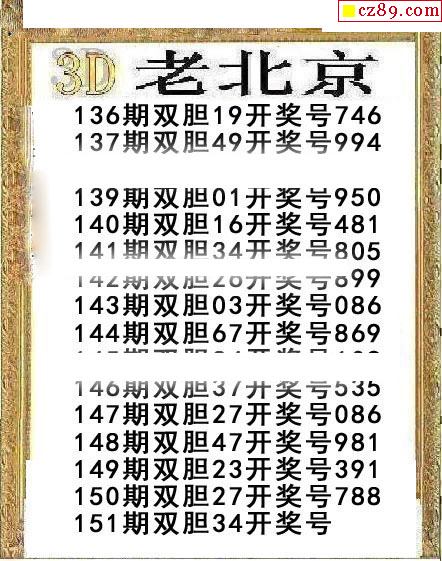 cz89.com
3D 老北京
136期双胆19开奖号746
137期双胆49开奖号994
139期双胆01开奖号950
140期双胆16开奖号481
141期双胆34开奖号805
142期双胆26开奖号899
143期双胆03开奖号086
144期双胆67开奖号869
期双胆 开奖号
146期双胆37开奖号535
147期双胆27开奖号086
148期双胆47开奖号981
149期双胆23开奖号391
150期双胆27开奖号788
151期双胆34开奖号